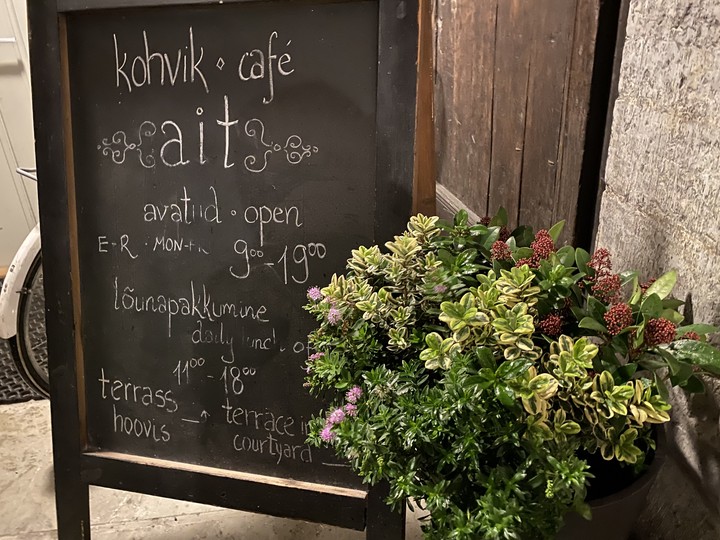 kohvik · café
ait
avatud · open
E-R · MON-
9⁰⁰-19⁰⁰
lõunapakkumine
daily lunch
11⁰⁰-18⁰⁰
terrass → terrace in
hoovis courtyard